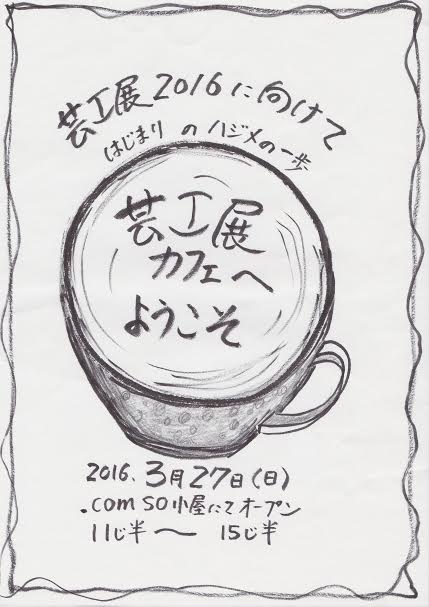 芸工展2016に向けて
はじまり の ハジメの一歩
芸工展
カフェへ
ようこそ
2016. 3月27日(日)
.com SO小屋にてオープン
11じ半 〜 15じ半